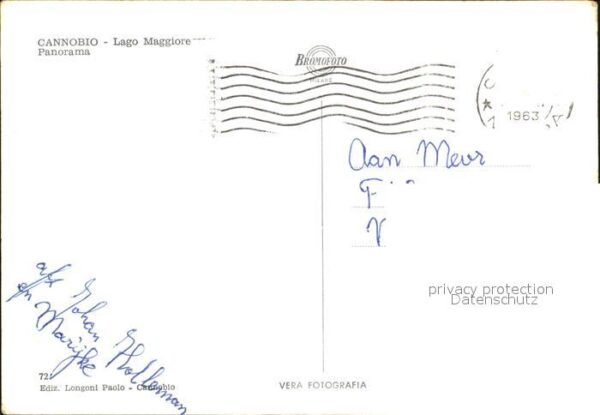 CANNOBIO - Lago Maggiore
Panorama
BROMOFOTO
MILANO
1963
Aan Mevr
F
V
privacy protection
Datenschutz
afz Johan Holleman
en Marijke
72
Ediz. Longoni Paolo - Cannobio
VERA FOTOGRAFIA